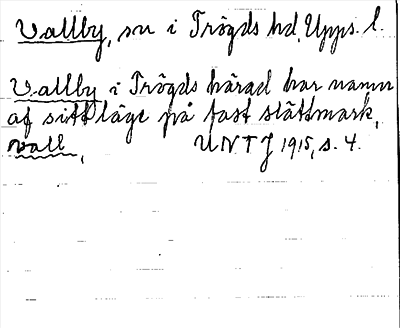 Vallby, sn i Trögds hd, Upps. l.
Vallby i Trögds härad har namn
af sitt läge på fast slättmark,
vall, UNTJ 1915, s. 4.